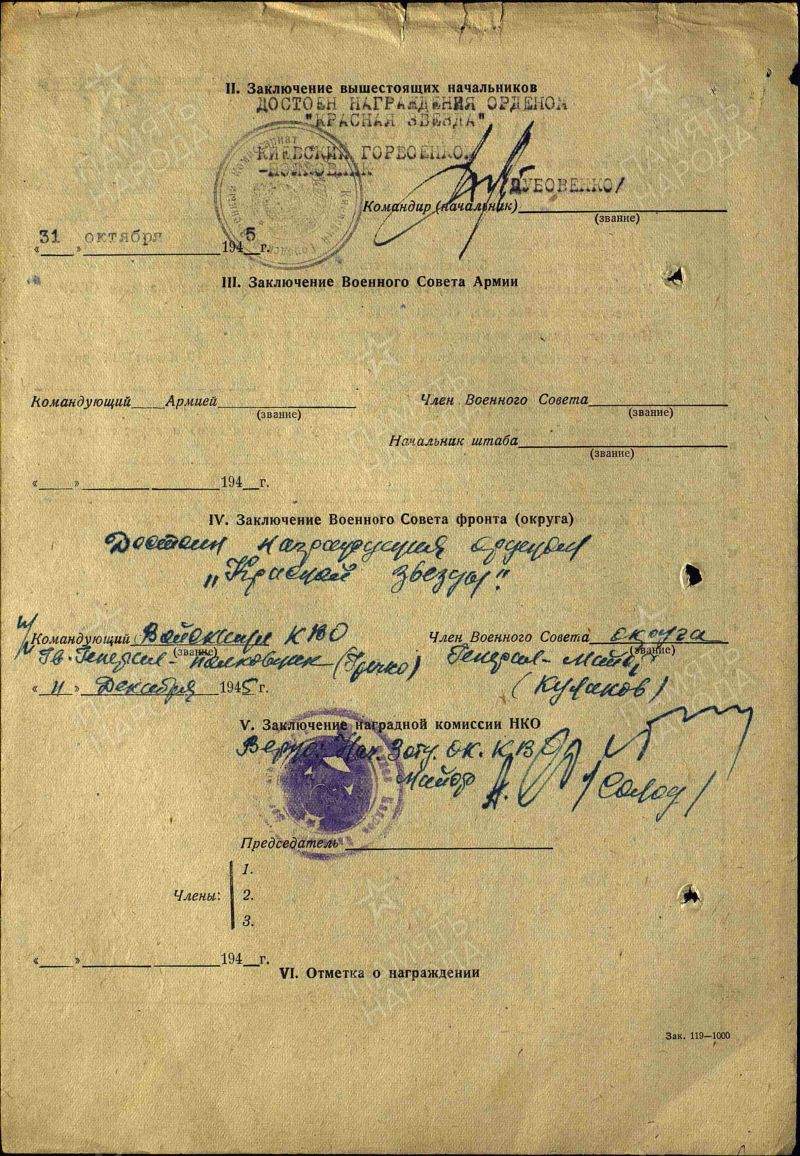 II. Заключение вышестоящих начальников
ДОСТОЕН НАГРАЖДЕНИЯ ОРДЕНОМ
"КРАСНАЯ ЗВЕЗДА".
КИЕВСКИЙ ГОРВОЕНКОМ
-ПОЛКОВНИК
/ДУБОВЕНКО/
Командир (начальник)
(звание)
«31» октября 1945 г.
III. Заключение Военного Совета Армии
Командующий Армией
(звание)
Член Военного Совета
(звание)
Начальник штаба
(звание)
« » 194 г.
IV. Заключение Военного Совета фронта (округа)
Достоин награждения орденом
"Красной звезды".
Командующий Войсками КВО
(звание)
Член Военного Совета округа
(звание)
Гв. Генерал-полковник (Гречко)
Генерал-майор
(Кулаков)
«11» Декабря 1945 г.
V. Заключение наградной комиссии НКО
Верно: Нач. ок. КВО
Майор
/Солод/
Председатель
Члены:
1.
2.
3.
« » 194 г.
VI. Отметка о награждении
Зак. 119—1000
ПАМЯТЬ
НАРОДА